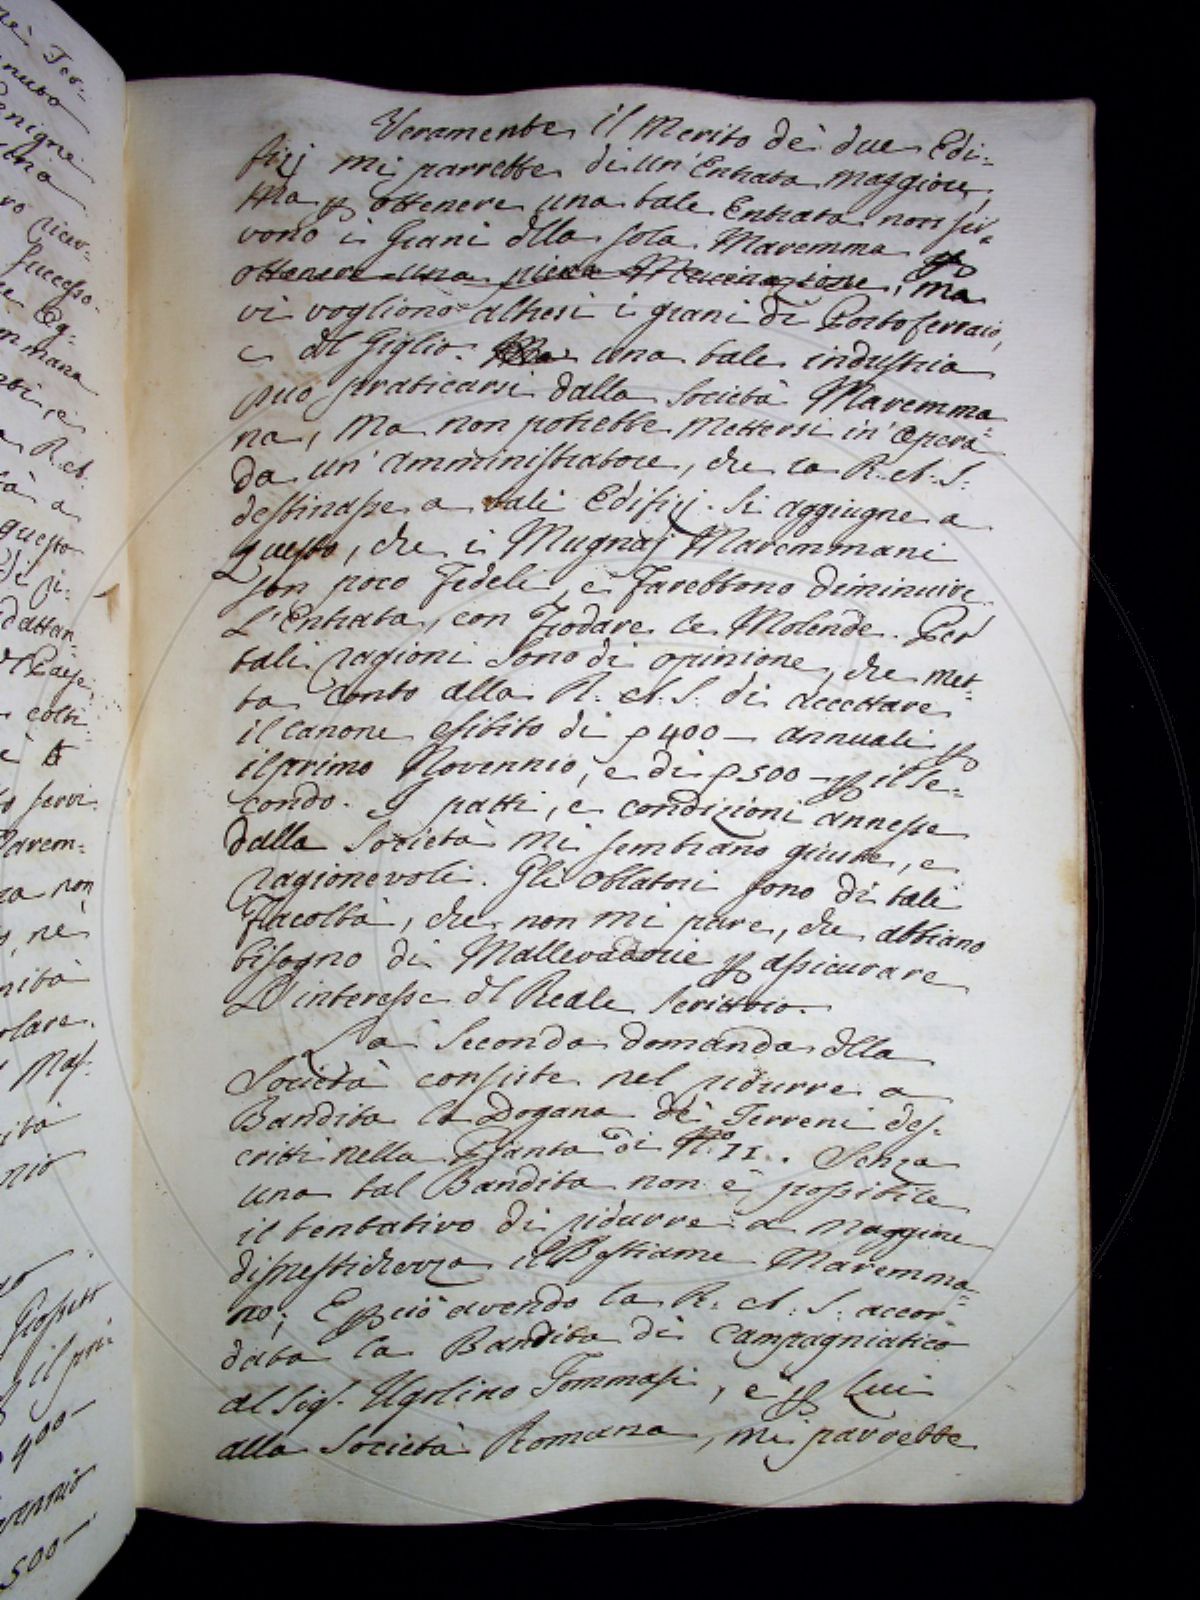 Veramente il Merito dè due Edi-
fizj mi parrebbe di un' Entrata maggiore,
Ma p ottenere una tale Entrata non ser-
vono i Grani dlla sola Maremma p
ottenere una piena Macinazione, ma
vi vogliono altresi i grani di Portoferraio,
e dl Giglio. Ma una tale industria
può praticarsi dalla Società Maremma
na, Ma non potrebbe mettersi in' opera
da un' amministratore, che la R. A. S.
destinasse a tali Edifizj. Si aggiugne a
questo, che i Mugnaj Maremmani
son poco fedeli, e farebbono diminuire
L'Entrata, con frodare le Molende. Per
tali ragioni sono di opinione, che met-
ta conto alla R. A. S. di accettare
il canone esibito di p 400 — annuali p
il primo Novennio, e di p 500 — p il se-
condo. I patti, e condizioni annesse
dalla Società mi sembrano giuste, e
ragionevoli. Gli oblatori sono di tali
Facoltà, che non mi pare, che abbiano
bisogno di Mallevadorie p assicurare
L'interesse dl Reale Scrittoio.
La Seconda domanda dlla
Società consiste nel ridurre a
Bandita la Dogana dè Terreni des-
critti nella Pianta di N.º II. Senza
una tal Bandita non è possibile
il tentativo di ridurre a maggiore
dimestichezza il Bestiame Maremma-
no; E p ciò avendo la R. A. S. accor-
data la Bandita di Campagniatico
al Sigr. Ugolino Tommasi, e p Lui
alla Società Romana, mi parrebbe